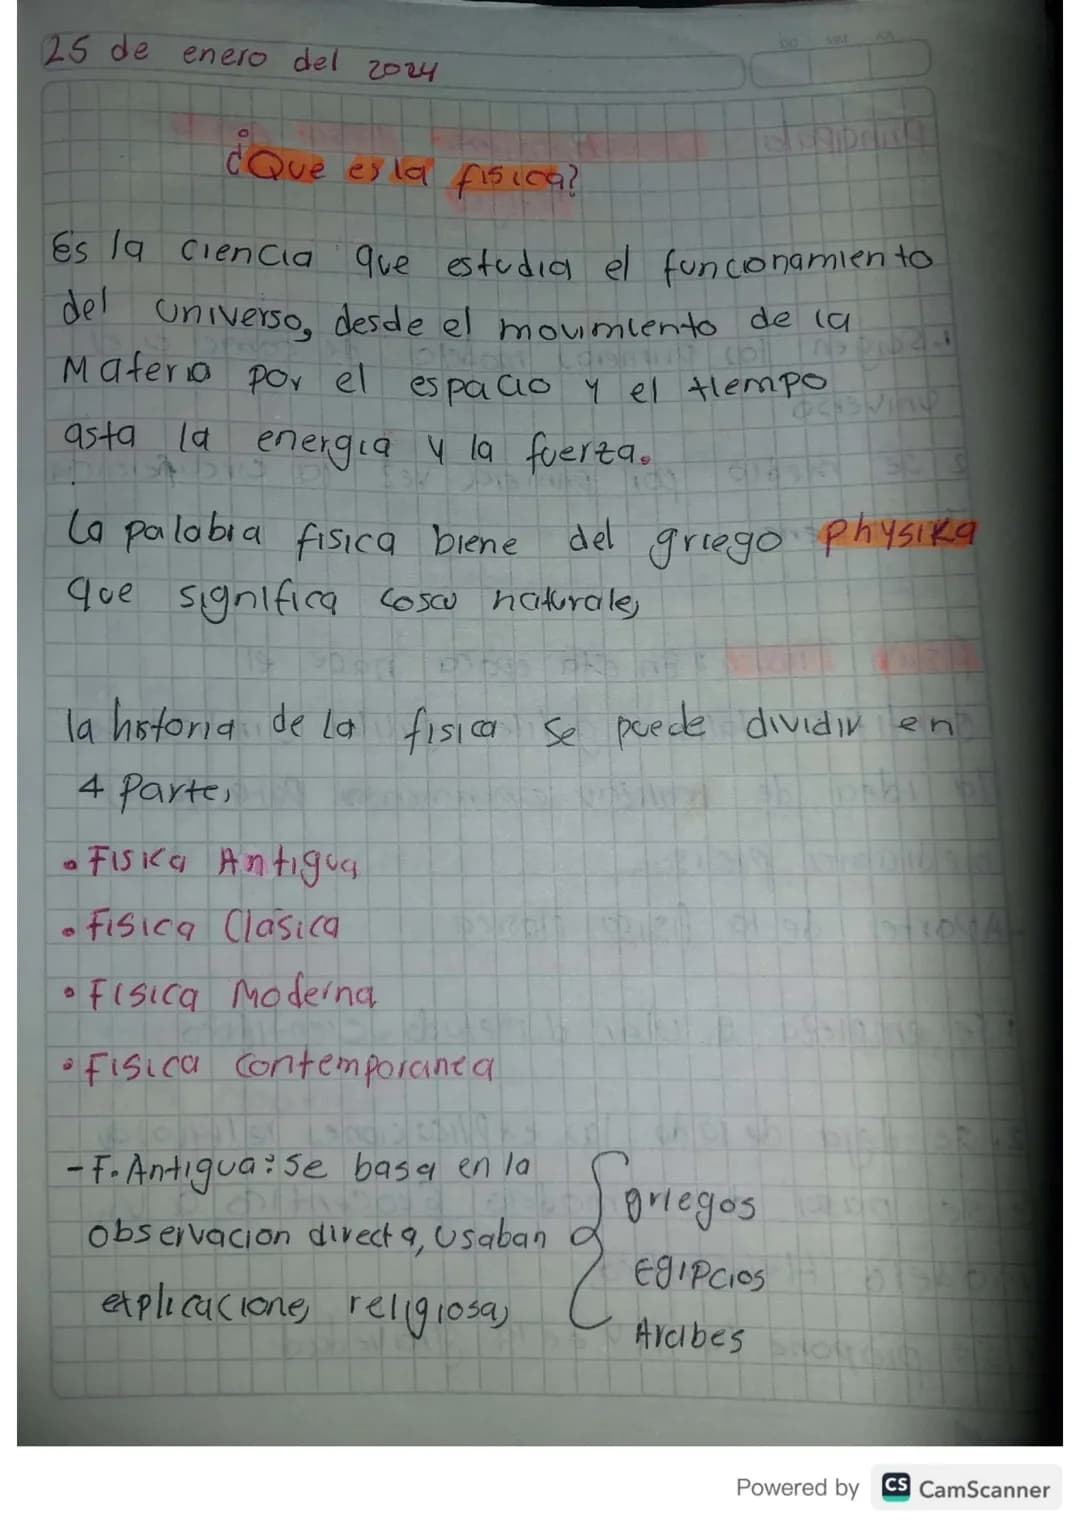 25 de enero del 2024
¿Que es la fisica?
Es la ciencia que estudia el funcionamiento
del universo, desde el movimiento de la
Materia por el espacio y el tiempo
asta la energia y la fuerza.
La palabra fisica biene del griego physika
que significa cosas naturales
la historia de la fisica se puede dividir en
4 Partes
• Fisica Antigua
• Fisica Clasica
• Fisica Moderna
• Fisica Contemporanea
- F. Antigua: Se basa en la
observacion directa, Usaban
explicaciones religiosas
griegos
Egipcios
Arabes
Powered by CS CamScanner